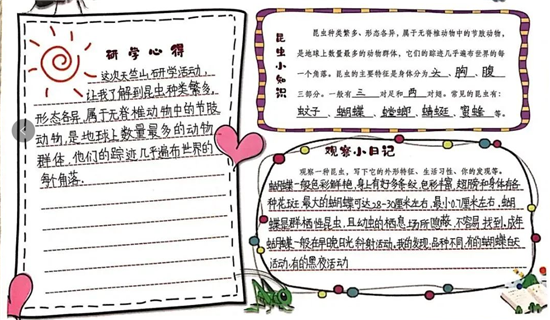 研学心得
这次天竺山研学活动，
让我了解到昆虫种类繁多，
形态各异，属于无脊椎动物中的节肢
动物，是地球上数量最多的动物
群体，他们的踪迹几乎遍布世界的
每个角落。
昆虫小知识
昆虫种类繁多、形态各异，属于无脊椎动物中的节肢动物，
是地球上数量最多的动物群体，它们的踪迹几乎遍布世界的每
一个角落。昆虫的主要特征是身体分为头、胸、腹
三部分。一般有三对足和两对翅。常见的昆虫有：
蚊子、蝴蝶、螳螂、蜻蜓、蜜蜂等。
观察小日记
观察一种昆虫，写下它的外形特征、生活习性、你的发现等。
蝴蝶一般色彩鲜艳，身上有好多条纹，色彩丰富，翅膀和身体有各
种花斑，最大的蝴蝶可达28-30厘米左右，最小0.7厘米左右，蝴
蝶是群栖性昆虫，且幼虫的栖息场所隐蔽，不容易找到，成年
蝴蝶一般在早晚日光斜射活动。我的发现：品种不同，有的蝴蝶白天
活动，有的黑夜活动